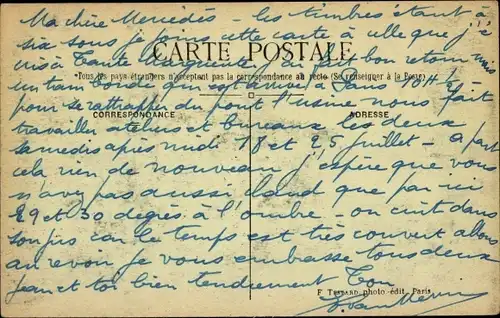 Ma chère Mercédès - les timbres étant à
six sous je joins cette carte à celle que j'é
cris à Tante Marguerite J'ai fait bon retour mais
CARTE POSTALE
Tous les pays étrangers n'acceptent pas la correspondance au recto (Se renseigner à la Poste)
un tam borde qui est arrivé à 10h 1/2
pour se rattraper du pont l'usine nous fait
CORRESPONDANCE
ADRESSE
travailler ateliers et bureaux les deux
samedis après midi 18 et 25 juillet - à part
cela rien de nouveau j'espère que vous
n'avez pas aussi chaud que par ici
29 et 30 degrés à l'ombre - on cuit dans
son jus car le temps est très couvert allons
au revoir je vous embrasse tous deux
Jean et toi bien tendrement Ton
F Tessard photo-édit Paris